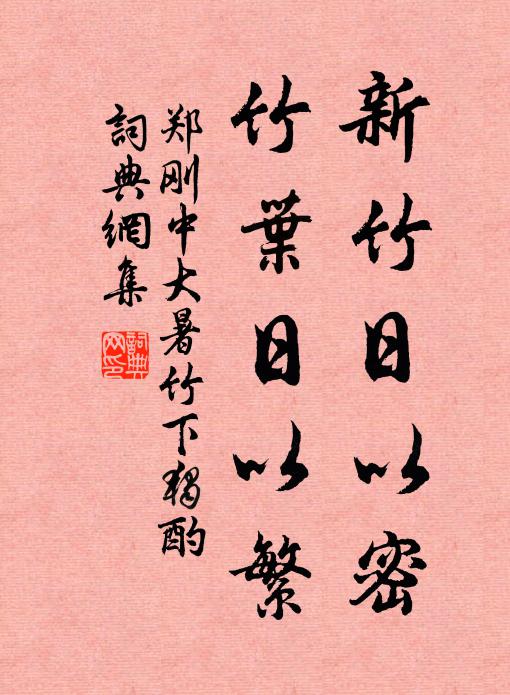 新竹日以密
竹葉日以繁
郑刚中大暑竹下独酌
詞典網集
詞典网印